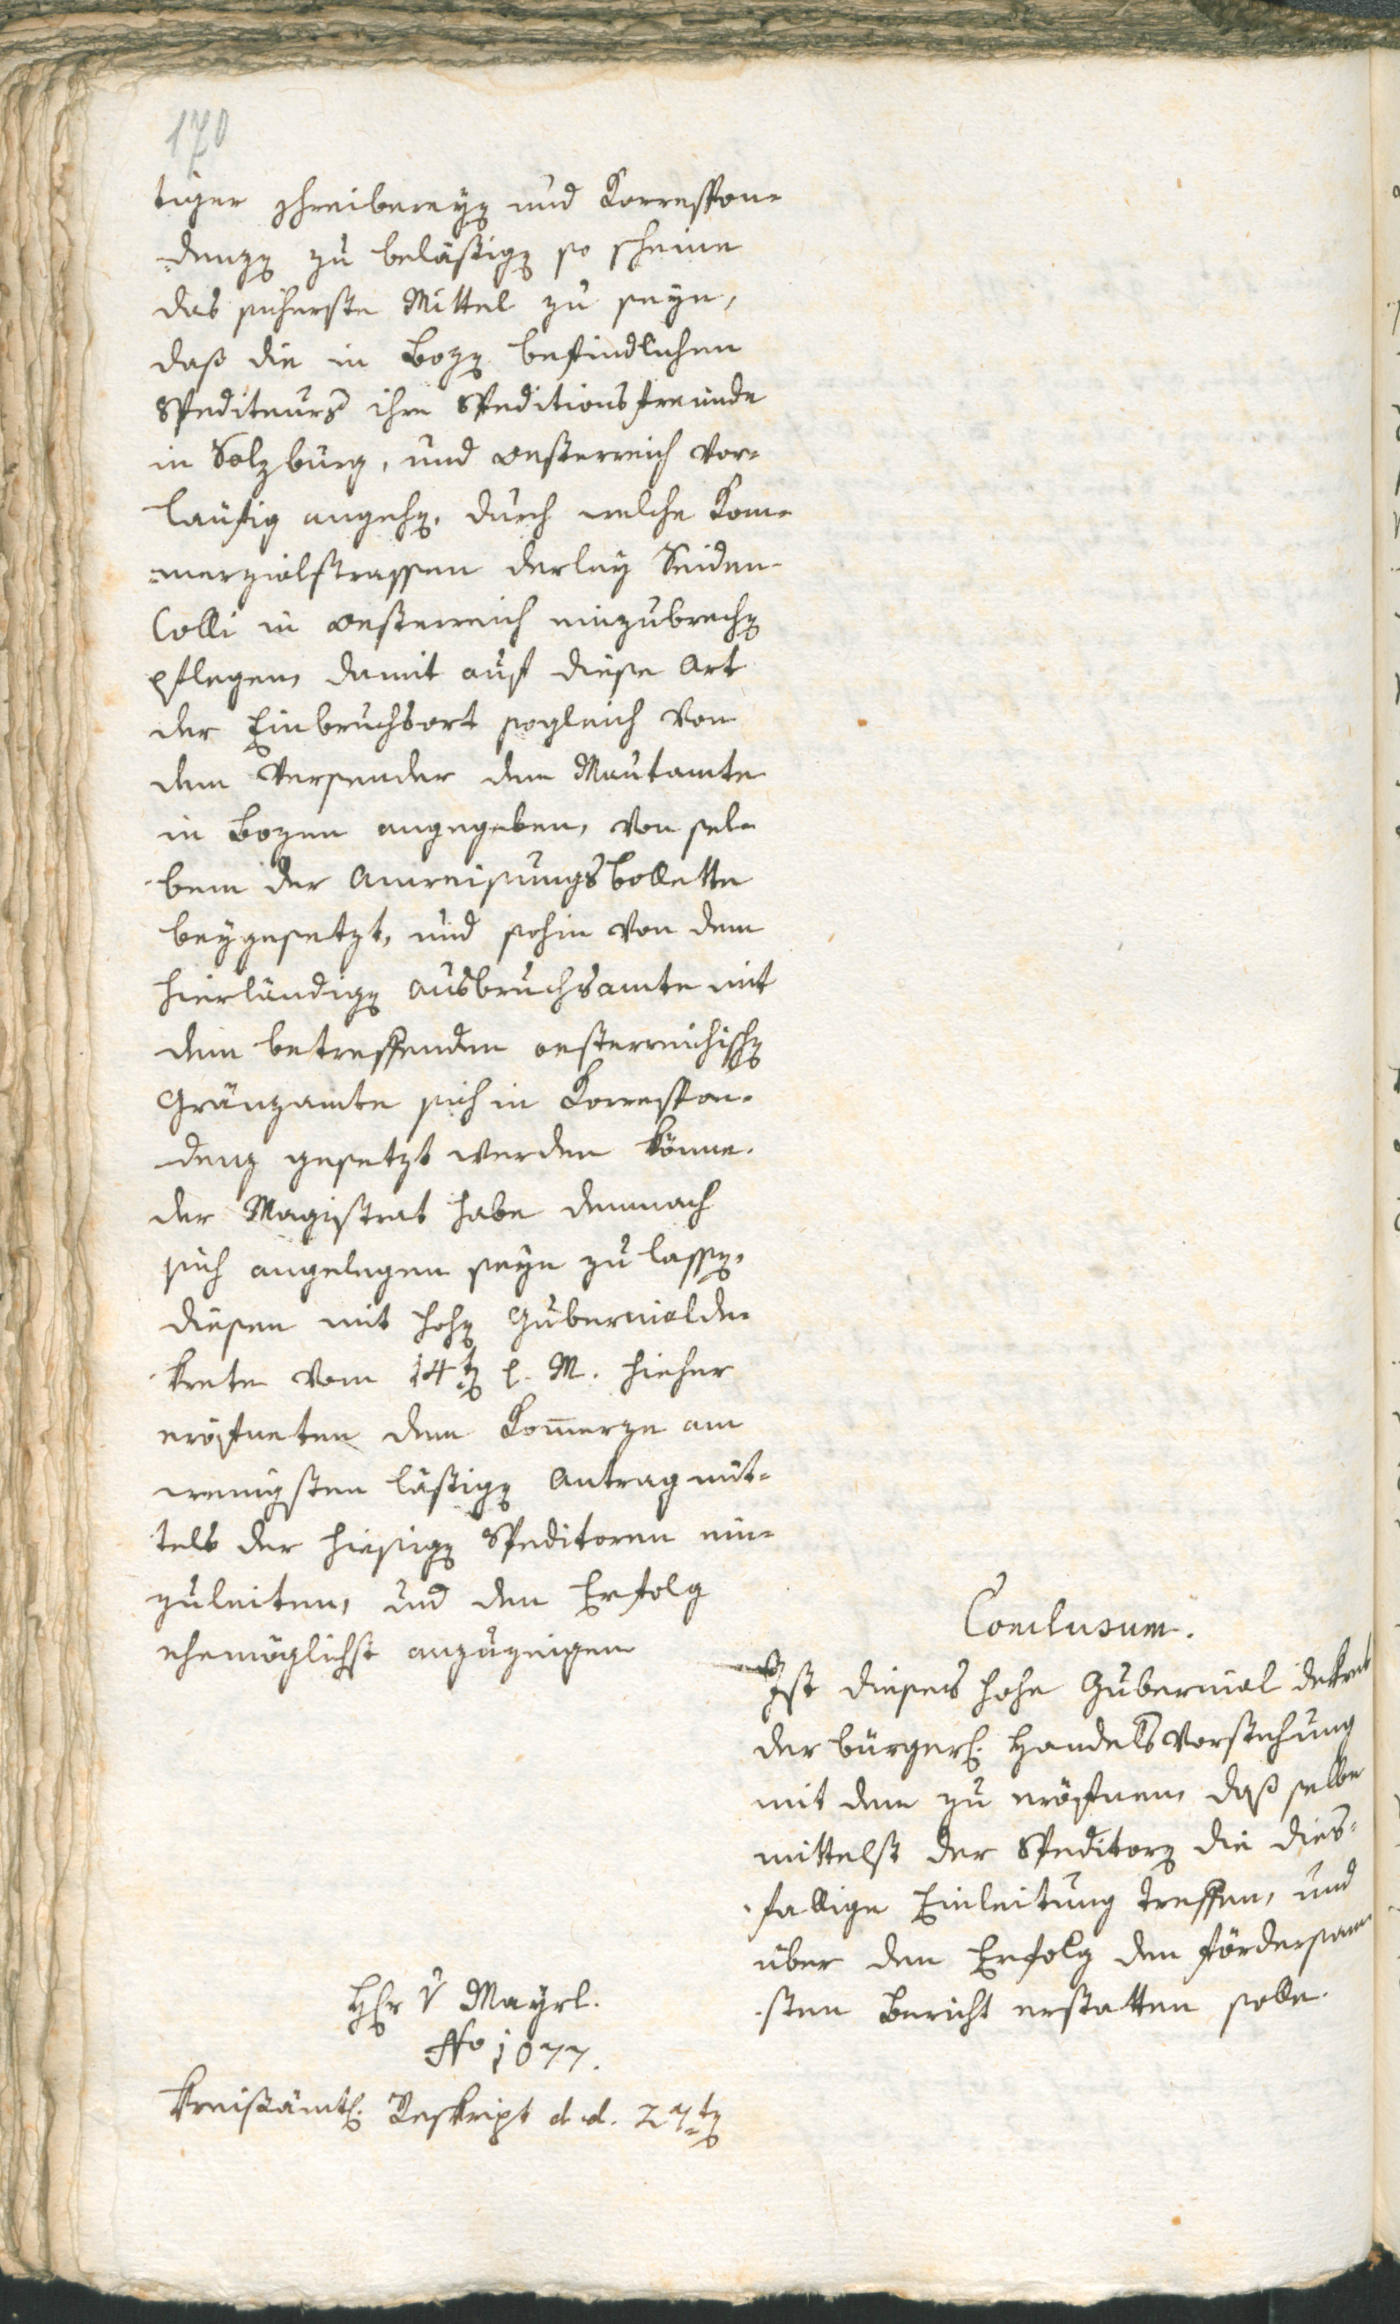 170
tiger schreibereyen und Korrespon-
denzen zu belästigen so scheine
das sicherste Mittel zu seyn,
daß die in Bozen befindlichen
Spediteurs ihre Speditionsfreunde
in Salzburg, und oesterreich vor-
laüfig angehen, durch welche Kom-
merzialstrassen derley Seiden-
Colli in oesterreich einzubrechen
pflegen, damit auf diese Art
der Einbruchsort sogleich von
dem Versender dem Mautamte
in Bozen angegeben, von sel-
bem der Anweisungsbollette
beygesetzt, und sohin von dem
hierländigen Ausbruchsamte mit
dem betreffenden oesterreichischen
Gränzamte sich in Korrespon-
denz gesetzt werden könne.
der Magistrat habe demnach
sich angelegen seyn zu lassen,
diesen mit hohen Gubernialde-
krete vom 14ten l. M. hieher
eröfneten dem Kommerze am
wenigsten lästigen Antrag mit-
tels der hiesigen Speditoren ein-
zuleiten, und den Erfolg
ehemöglichst anzuzeigen
Conclusum.
Ist dieses hohe Gubernial dekret
der bürgerl. Handels Vorstehung
mit dem zu eröfnen, daß selbe
mittelst der Speditoren die dies-
fallige Einleitung treffen, und
über den Erfolg den fördersam-
sten Bericht erstatten solle.
Hr v Mayrl.
No 1077.
Kreisämtl. Reskript d. d. 27ten